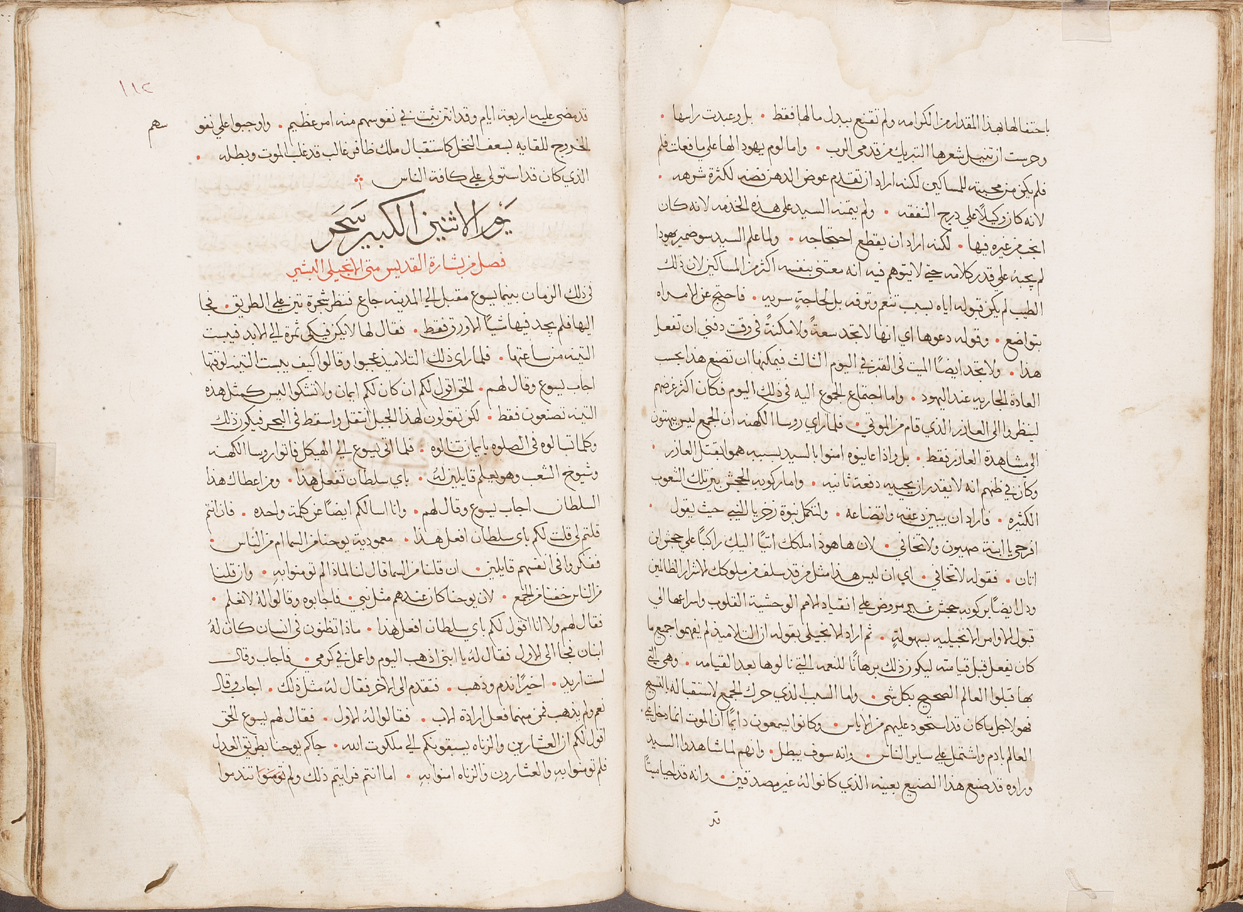 باحتفالها بهذا المقدار من الكرامه ولم تقنع ببدل مالها فقط • بل وعبدت راسها •
وحرست ان تنيل شعرها التبريك من قدمي الرب • واما لوم يهودا لها علي ما فعلت فلم
فلم يكن من محبته للمساكين لكنه اراد ان تقدم عوض الدهن فضه لكثرة شرهه •
لانه كان وكيلاً علي درج النفقه • ولم يتمنه السيد علي هذه الخدمه لانه كان
انجب من غيره فيها • لكنه اراد ان يقطع احتجاجه • ولما علم السيد سو ضمير يهودا
لم يجبه علي قدر كلامه حتي لا يتوهم فيه انه معتني بنفسه اكثر من المساكين لان ذلك
الطيب لم يكن قبوله اياه لسبب تنعم وترفه بل لحاجةٍ سريه • فاحتج عن الامراه
بتواضع • وبقوله دعوها اي انها لا تجد سعةً ولا مكنةً في وقت دفني ان تفعل
هذا • ولا تجد ايضًا الميت في القبر في اليوم الثالث فيمكنها ان تصنع هذا بحسب
العادة الجاريه عند اليهود • واما اجتماع الجموع اليه في ذلك اليوم فكان اكثر غرضهم
لينظروا الي العازر الذي قام من الموتي • فلما راي روسا الكهنه ان الجمع ليس يبهتون
الي مشاهدة العازر فقط • بل واذا عاينوه امنوا بالسيد بسببه هموا بقتل العازر •
وكان في ظنهم انه لا يقدر ان يحييه دفعة ثانيه • واما ركوبه الجحش بين تلك الشعوب
الكثيره • فاراد ان يبين دعته واتضاعه • ولتكمل نبوة زخريا النبي حيث يقول •
افرحي يا ابنة صهيون ولا تخافي • لان ها هوذا ملكك اتيًا اليك راكبًا علي جحش ابن
اتان • فقوله لا تخافي • اي ان ليس هذا مثل من قد سلف من ملوكك الاشرار الظالمين
ودل ايضًا بركوبه جحش غير مروض علي انقياد الامم الوحشية القلوب واسراعها الي
قبول الاوامر الانجيليه بسهوله • ثم اراد الانجيلي بقوله ان التلاميذ لم يفهموا جميع ما
كان يفعل قبل قيامته ليكون ذلك برهانًا للنعمه التي نالوها بعد القيامه • وهي التي
بها قبلوا العالم الصحيح بكل شي • ولما السبب الذي حرك الجمع لاستقباله بالتسبيح
فهو لاجل ما كان قد استحوذ عليهم من الاياس • وكانوا يسمعون دائمًا ان الموت انما دخل الي
العالم بادم واشتمل علي ساير الناس • وانه سوف يبطل • وانهم لما شاهدوا السيد
وراوه قد صنع هذا الصنيع بعينه الذي كانوا له غير مصدقين • وانه قد احيا ميتًا
قد
١١٢
قد مضي عليه اربعة ايام وقد انتن ثبت في نفوسهم منه امر عظيم • واوجبوا علي نفو
سهم
الخروج للقايه بسعف النخل كاستقبال ملك ظافر غالب قد غلب الموت وبطله •
الذي كان قد استولي علي كافة الناس
يوم الاثنين الكبير سحر
فصل من بشارة القديس متي الانجيلي البشير
في ذلك الزمان بينما يسوع مقبل الي المدينه جاع فنظر شجرة تين علي الطريق • فجا
اليها فلم يجد فيها شيًا الا ورق فقط • فقال لها لا يكن فيكي ثمرة الي الابد فيبست
التينه من ساعتها • فلما راي ذلك التلاميذ عجبوا وقالوا كيف يبست التينه لوقتها
اجاب يسوع وقال لهم • الحق اقول لكم ان كان لكم ايمان ولا تشكوا ليس كمثل هذه
التينه تصنعون فقط • لكن تقولون لهذا الجبل انتقل واسقط في البحر فيكون ذلك
وكلما تسالوه في الصلوه بايمان تنالوه • فلما اتي يسوع الي الهيكل فاتوا روسا الكهنه
وشيوخ الشعب وهو يعلم قايلين له • باي سلطان تفعل هذا • ومن اعطاك هذا
السلطان اجاب يسوع وقال لهم • وانا اسالكم ايضًا عن كلمة واحده • فان انتم
قلتم لي قلت لكم باي سلطان افعل هذا • معمودية يوحنا من السما ام من الناس •
ففكروا في انفسهم قايلين • ان قلنا من السما قال لنا لماذا لم تومنوا به • وان قلنا
من الناس خفنا من الجمع • لان يوحنا كان عندهم مثل نبي • فاجابوه وقالوا له لا نعلم •
فقال لهم ولا انا اقول لكم باي سلطان افعل هذا • ماذا تظنون في انسان كان له
ابنان فجا الي الاول • فقال له يا ابني اذهب اليوم واعمل في كرمي • فاجاب وقال
لست اريد • اخيرًا ندم وذهب • فتقدم الي الاخر فقال له مثل ذلك • اجاب قال
نعم ولم يذهب فمن منهما فعل ارادة الاب • فقالوا له الاول • فقال لهم يسوع الحق
اقول لكم ان العشارين والزناه يسبقونكم الي ملكوت الله • جاكم يوحنا بطريق العدل
فلم تومنوا به والعشارون والزناه امنوا به • اما انتم فرايتم ذلك ولم تومنوا تندموا